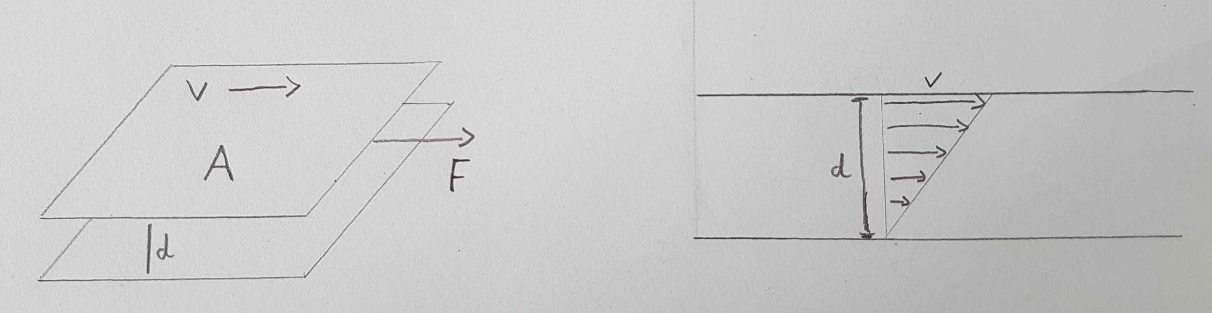 V
A
F
d
V
d